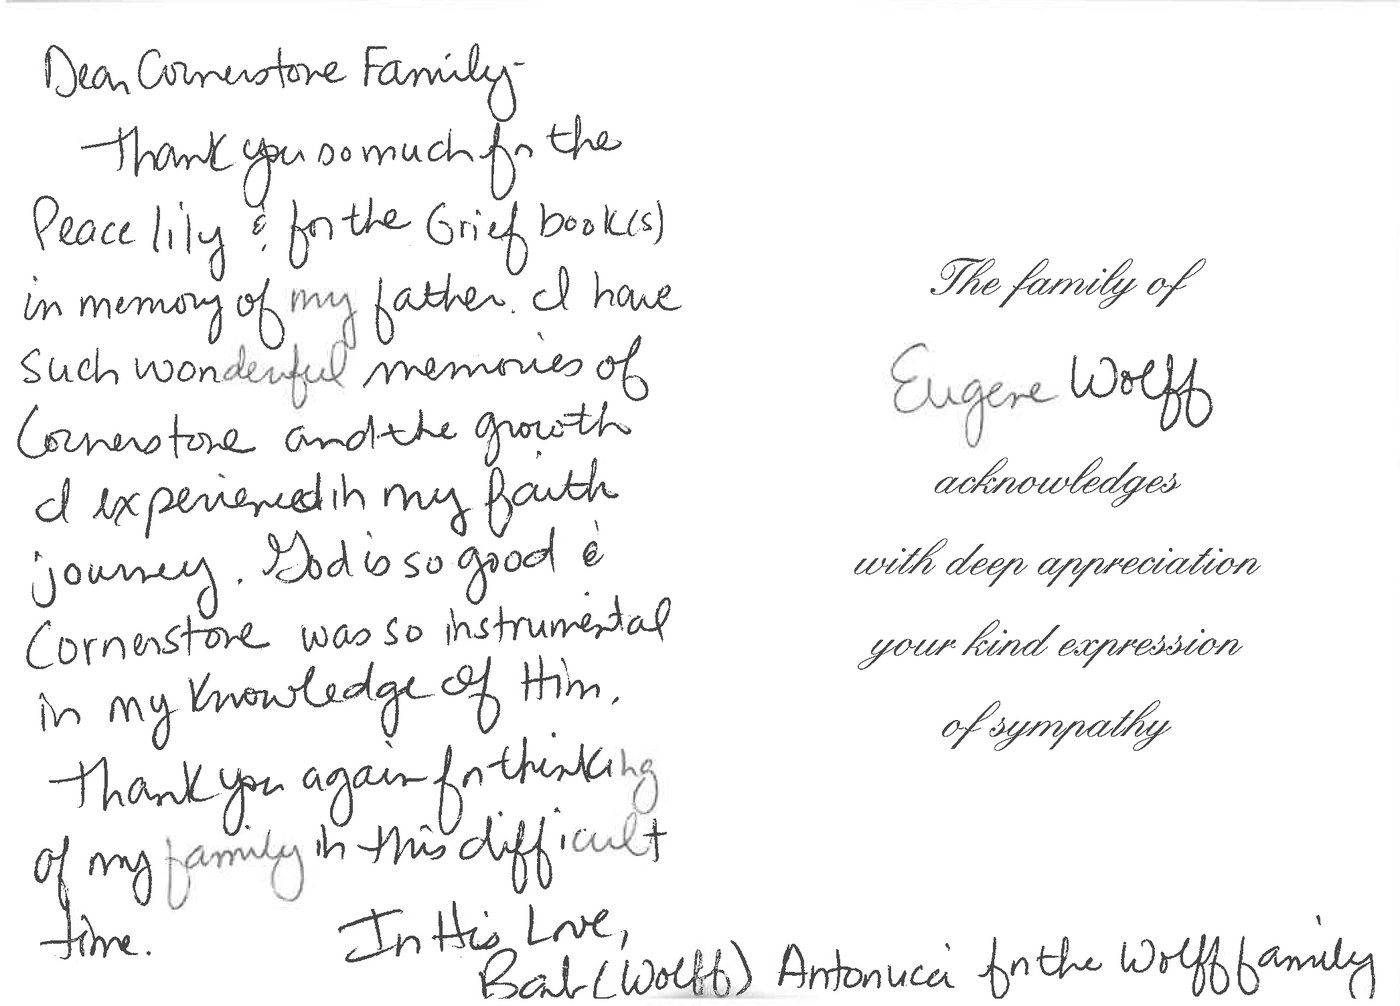 Dear Cornerstone Family-
Thank you so much for the
Peace lily & for the Grief book(s)
in memory of my father. I have
such wonderful memories of
Cornerstone and the growth
I experienced in my faith
journey. God is so good &
Cornerstone was so instrumental
in my knowledge of Him.
Thank you again for thinking
of my family in this difficult
time.
In His Love,
Barb (Wolff) Antonucci for the Wolff family
The family of
Eugene Wolff
acknowledges
with deep appreciation
your kind expression
of sympathy